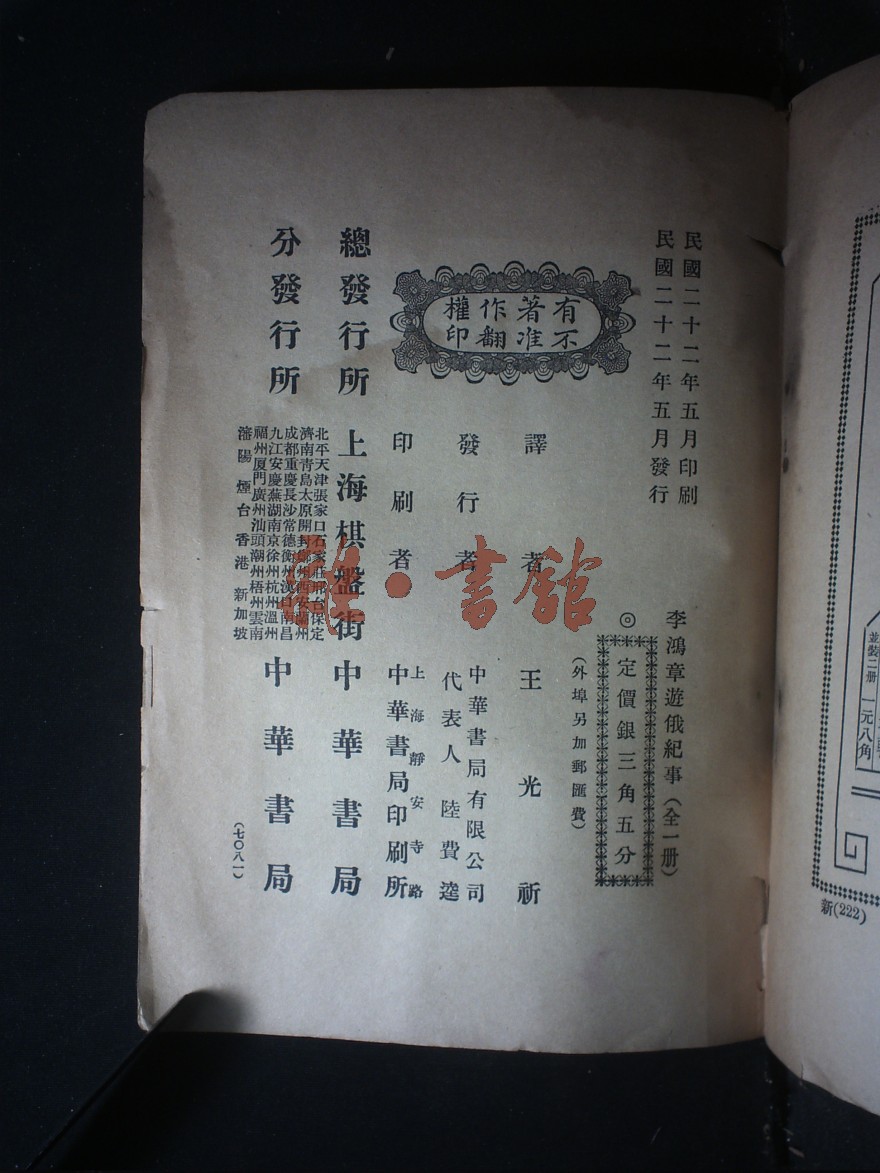 民國二十二年五月印刷
民國二十二年五月發行
李鴻章遊俄紀事(全一册)
◎定價銀三角五分
(外埠另加郵匯費)
有著作權
不准翻印
譯者 王光祈
發行者 中華書局有限公司
代表人 陸費逵
印刷者 上海靜安寺路
中華書局印刷所
總發行所 上海棋盤街 中華書局
分發行所
北平天津張家口石家莊邢台保定
濟南青島太原開封鄭州西安蘭州
成都重慶長沙常德衡州漢口南昌
九江安慶蕪湖南京徐州杭州溫州
福州厦門廣州汕頭潮州梧州雲南
瀋陽煙台香港新加坡
中華書局
(七〇八一)
並裝二册 一元八角
新(222)
雅·書館